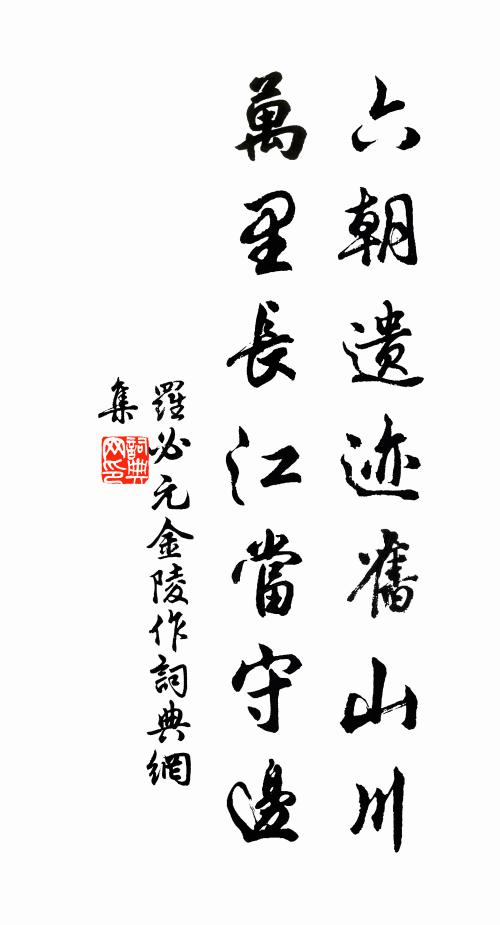 六朝遺迹舊山川
萬里長江當守邊
羅必元金陵作詞典網
集
詞典
网印